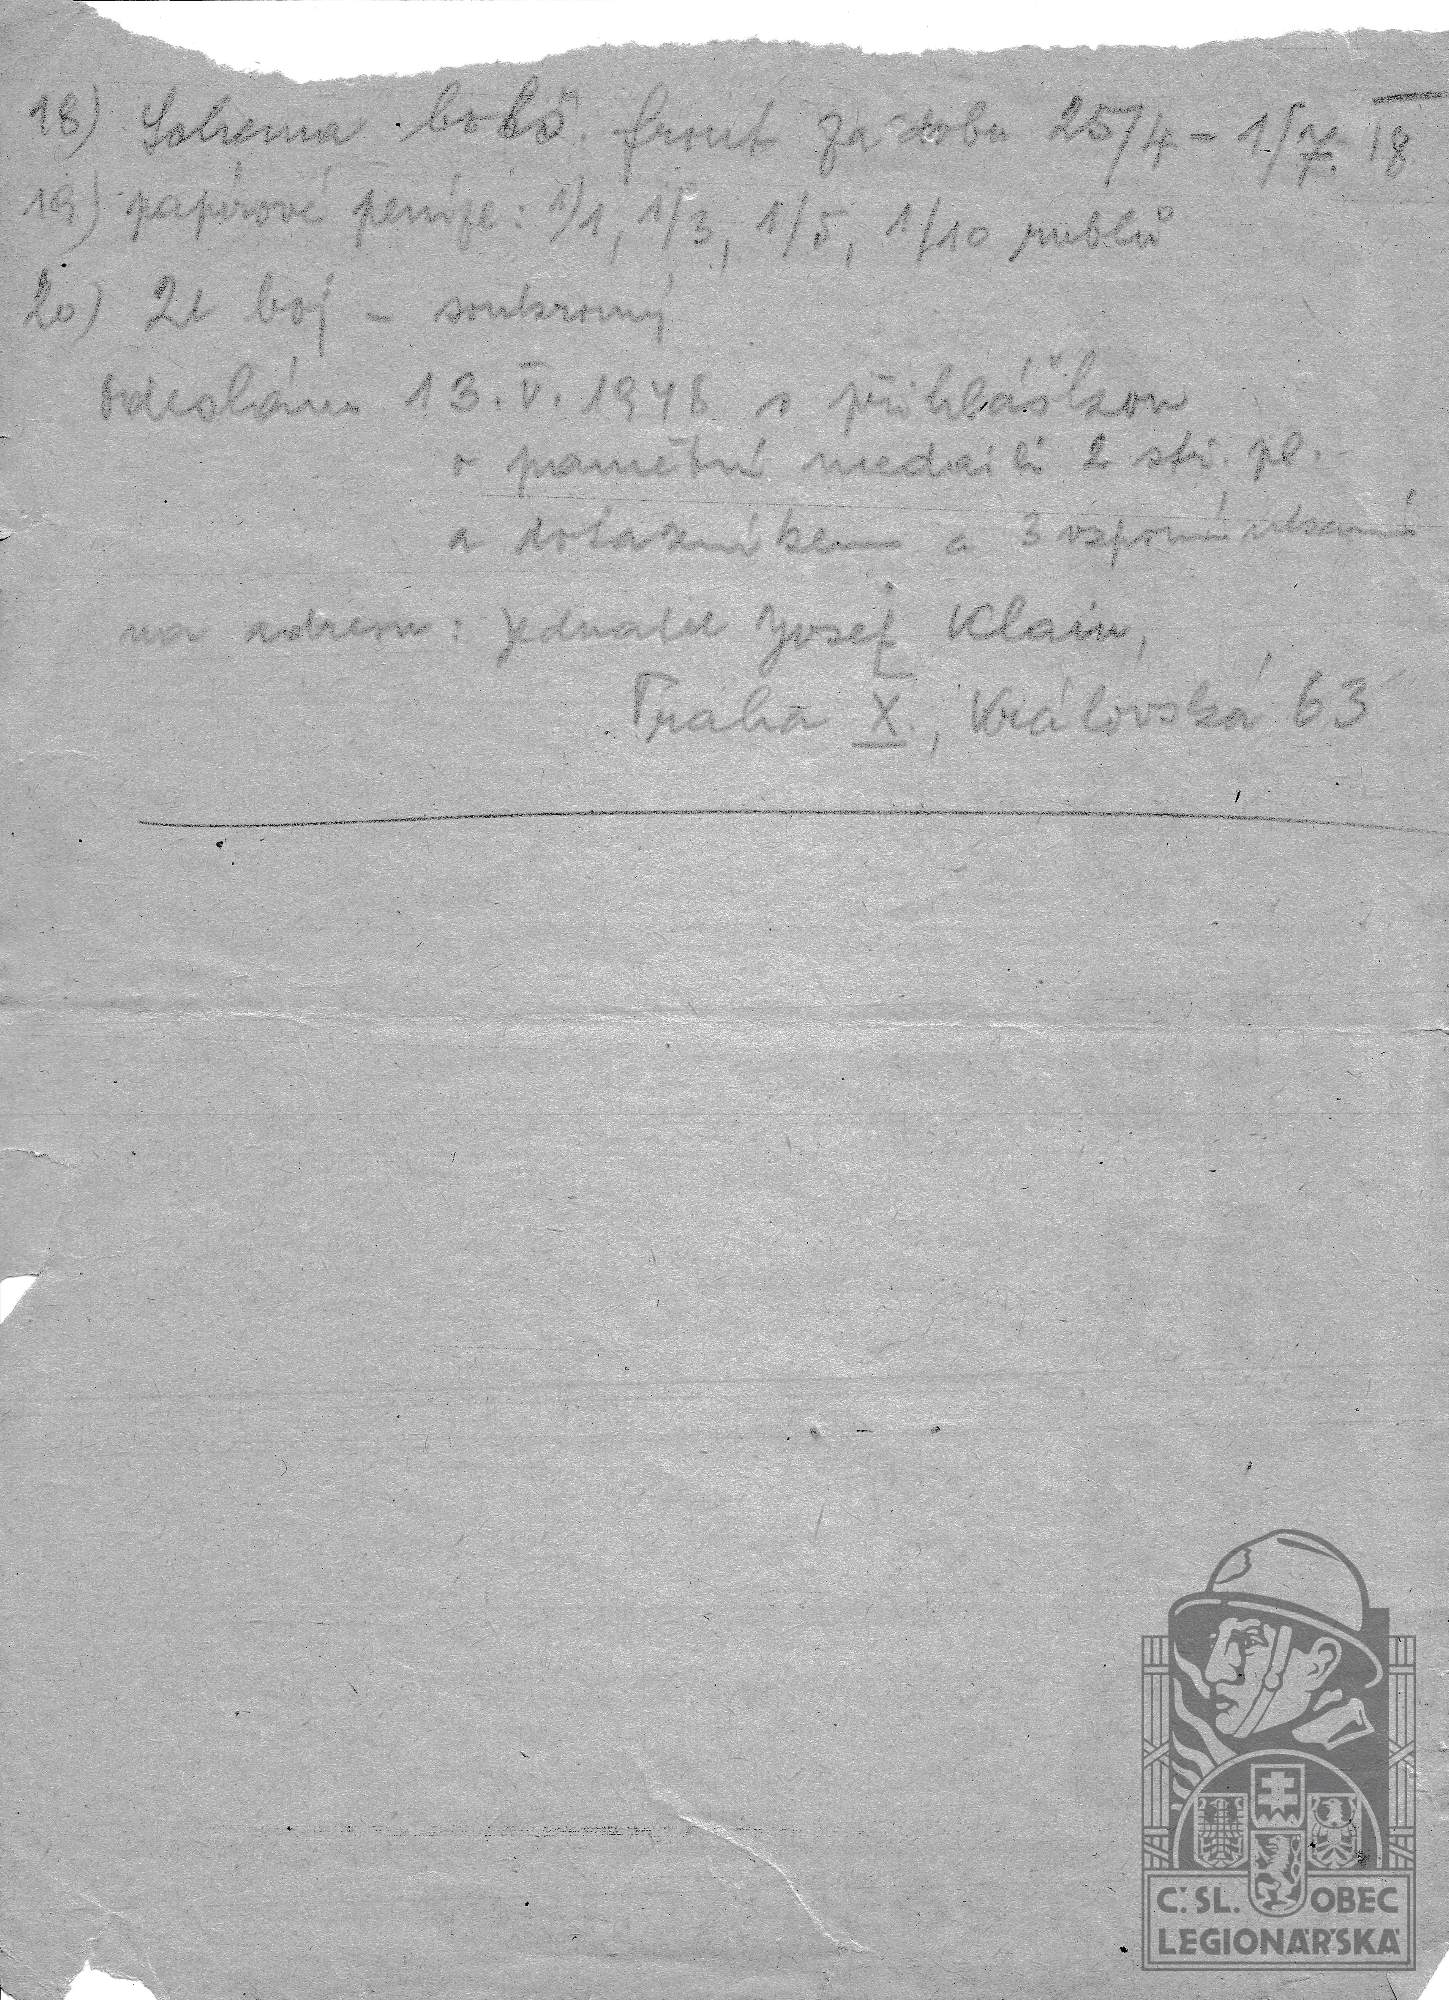 18) Schema bolš. front za dobu 25/4 - 1/7. 18
19) papírové peníze: 1/1, 1/3, 1/5, 1/10 rublů
20) Zl boj - soukromý
Odesláno 13. V. 1948 s přihláškou
o pamětní medaili 2 stř. pl.
a dotazníkem a 3 vzpomínkami
na adresu: jednatel Josef Klain,
Praha X., Královská 63
Č. SL. OBEC
LEGIONÁŘSKÁ